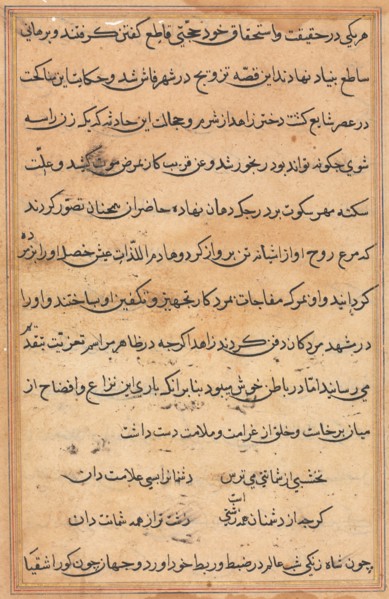 هر یکی در حقیقت و استحقاق خود حجتی قاطع کفتن کرفتند و برهانی
ساطع بنیاد نهادند این قصه تزویج در شهر فاش شد و حکایت این مناکحت
در عصر شایع کشت دختر زاهد از شرم و خجالت این حادثه که یک زن را سه
شوی چکونه تواند بود رنجور شد و عن قریب کار بمرض موت کشید و علت
سکته مهر سکوت بر درجک دهان نهاده حاضران همچنان تصور کردند
که مرغ روح او از اشیانه تن پرواز کرد و هادم اللذات عیش او را پژمرده
کردانید و او بمرک مفاجات بمرد کار تجهیز و تکفین او بساختند و او را
در مشهد مردکان دفن کردند زاهد اکرچه در ظاهر مراسم تعزیت بتقدیم
می رسانید اما در باطن خوش میبود بنابر انکه باری این نزاع و افضاح از
میان برخاست و خلو از غرامت و ملامت دست داشت
نخشبی از شماتتی می ترس دشمنان را بسی علامت دان
کرچه از دشمنان همه زشتی است زشت تر از همه شماتت دان
چون شاه زنکی شب عالم در ضبط و ربط خود اورد و جهان چون کور اشقیا